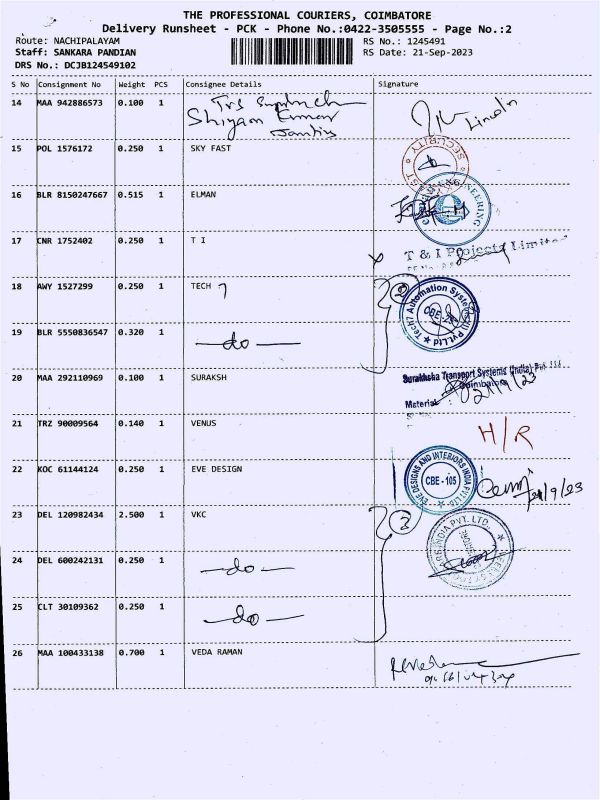 THE PROFESSIONAL COURIERS, COIMBATORE
Delivery Runsheet - PCK - Phone No.:0422-3505555 - Page No.:2
Route: NACHIPALAYAM RS No.: 1245491
Staff: SANKARA PANDIAN RS Date: 21-Sep-2023
DRS No.: DCJB124549102
S No Consignment No Weight PCS Consignee Details Signature
14 MAA 942886573 0.100 1 Shiyam Kumar Lincoln
15 POL 1576172 0.250 1 SKY FAST SECURITY
16 BLR 8150247667 0.515 1 ELMAN ENGINEERING
17 CNR 1752402 0.250 1 T I T & I Projects Limited
18 AWY 1527299 0.250 1 TECH 7 2 Tech7 Automation Systems Pvt Ltd CBE
19 BLR 5550836547 0.320 1 -do-
20 MAA 292110969 0.100 1 SURAKSH Suraksha Transport Systems (India) Pvt Ltd
Coimbatore
Material :
21 TRZ 90009564 0.140 1 VENUS H/R
22 KOC 61144124 0.250 1 EVE DESIGN EVE DESIGNS AND INTERIORS INDIA PVT LTD CBE - 105 21/9/23
23 DEL 120982434 2.500 1 VKC 3 INDIA PVT. LTD.
24 DEL 600242131 0.250 1 -do-
25 CLT 30109362 0.250 1 -do-
26 MAA 100433138 0.700 1 VEDA RAMAN